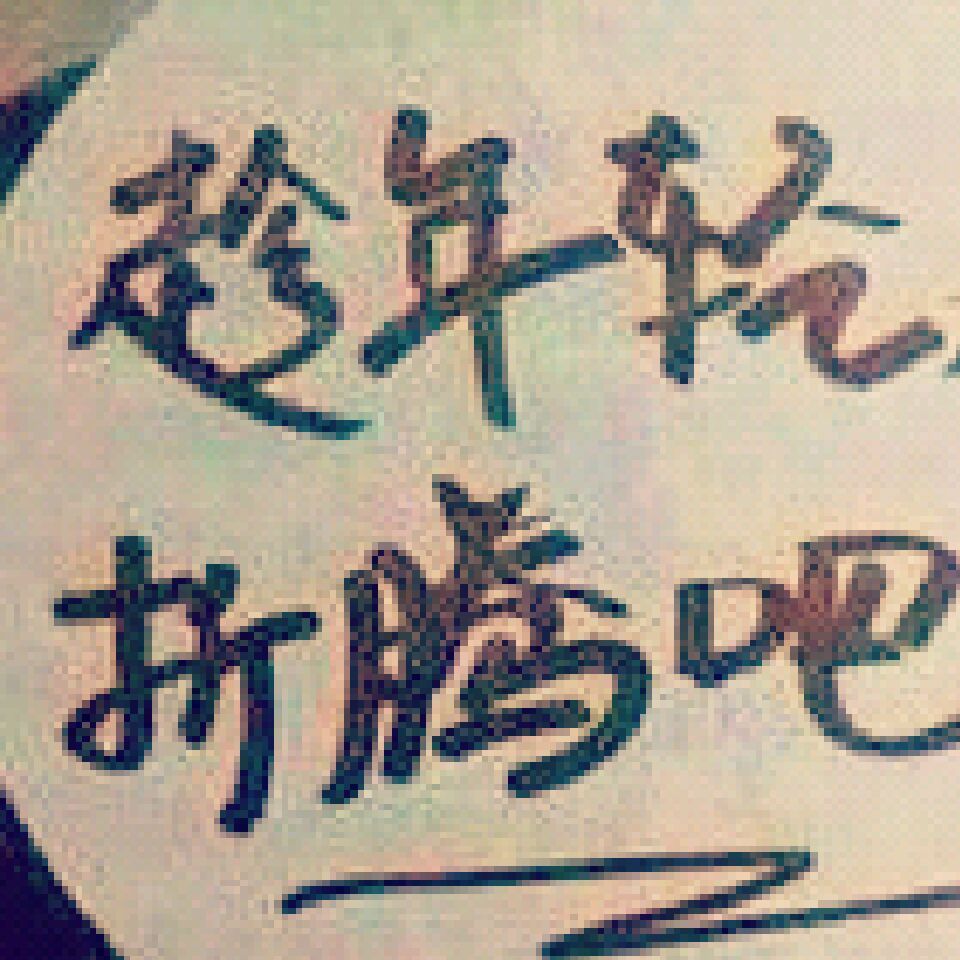 趁年轻,
折腾吧